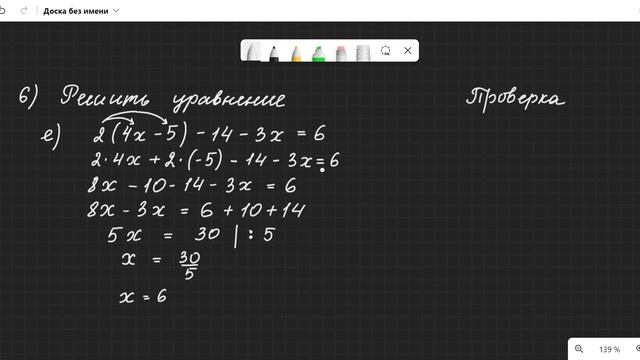 Доска без имени
6) Решить уравнение
Проверка
е) 2(4x - 5) - 14 - 3x = 6
2·4x + 2·(-5) - 14 - 3x = 6
8x - 10 - 14 - 3x = 6
8x - 3x = 6 + 10 + 14
5x = 30 | : 5
x = 30/5
x = 6
139 %